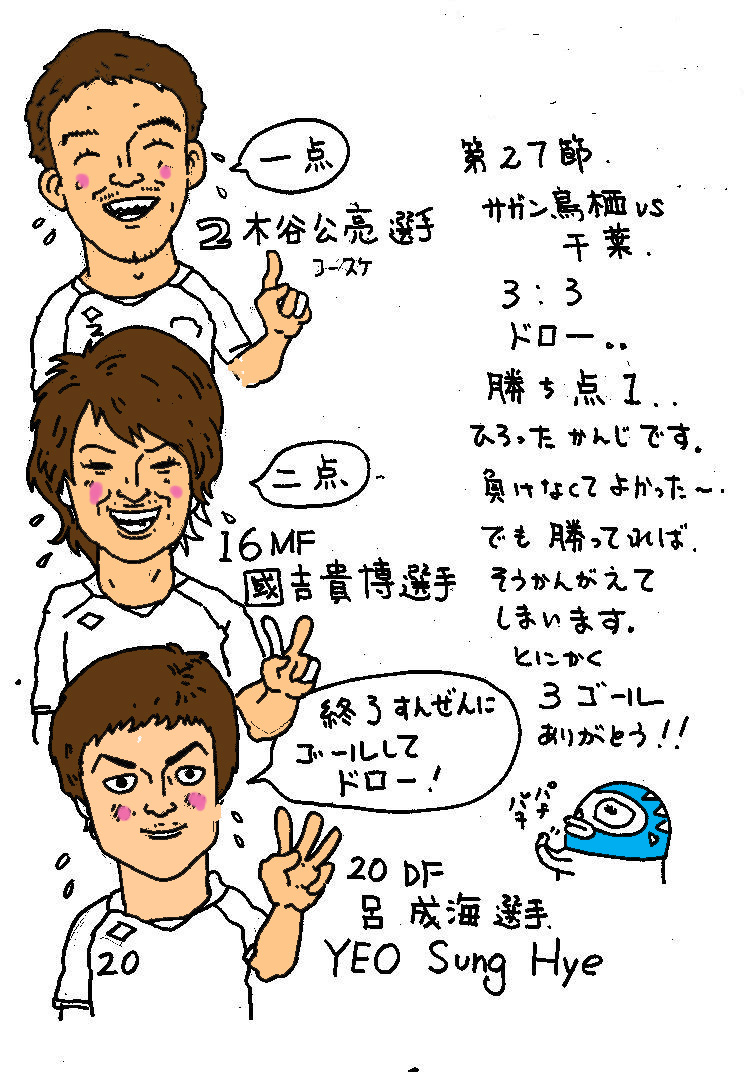 一点
2 木谷公亮選手
コースケ
2
二点
16MF
國吉貴博選手
終了すんぜんに
ゴールして
ドロー!
20 DF
呂 成海 選手
YEO Sung Hye
20
第27節.
サガン鳥栖vs
千葉.
3:3
ドロー..
勝ち点1..
ひろったかんじです。
負けなくてよかった〜.
でも勝ってれば.
そうかんがえて
しまいます。
とにかく
3ゴール
ありがとう!!
パチ
パチ